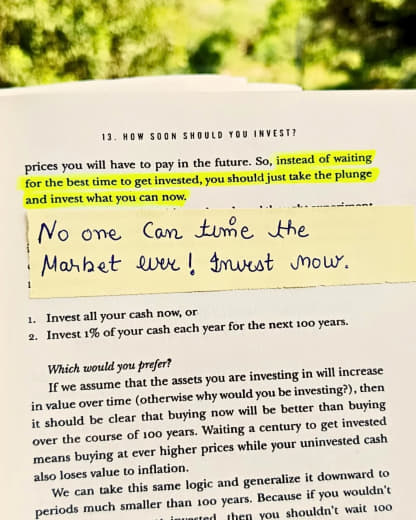 13. HOW SOON SHOULD YOU INVEST?
prices you will have to pay in the future. So, instead of waiting
for the best time to get invested, you should just take the plunge
and invest what you can now.
No one Can time the
Market ever! Invest now.
1. Invest all your cash now, or
2. Invest 1% of your cash each year for the next 100 years.
Which would you prefer?
If we assume that the assets you are investing in will increase
in value over time (otherwise why would you be investing?), then
it should be clear that buying now will be better than buying
over the course of 100 years. Waiting a century to get invested
means buying at ever higher prices while your uninvested cash
also loses value to inflation.
We can take this same logic and generalize it downward to
periods much smaller than 100 years. Because if you wouldn't
then you shouldn't wait 100